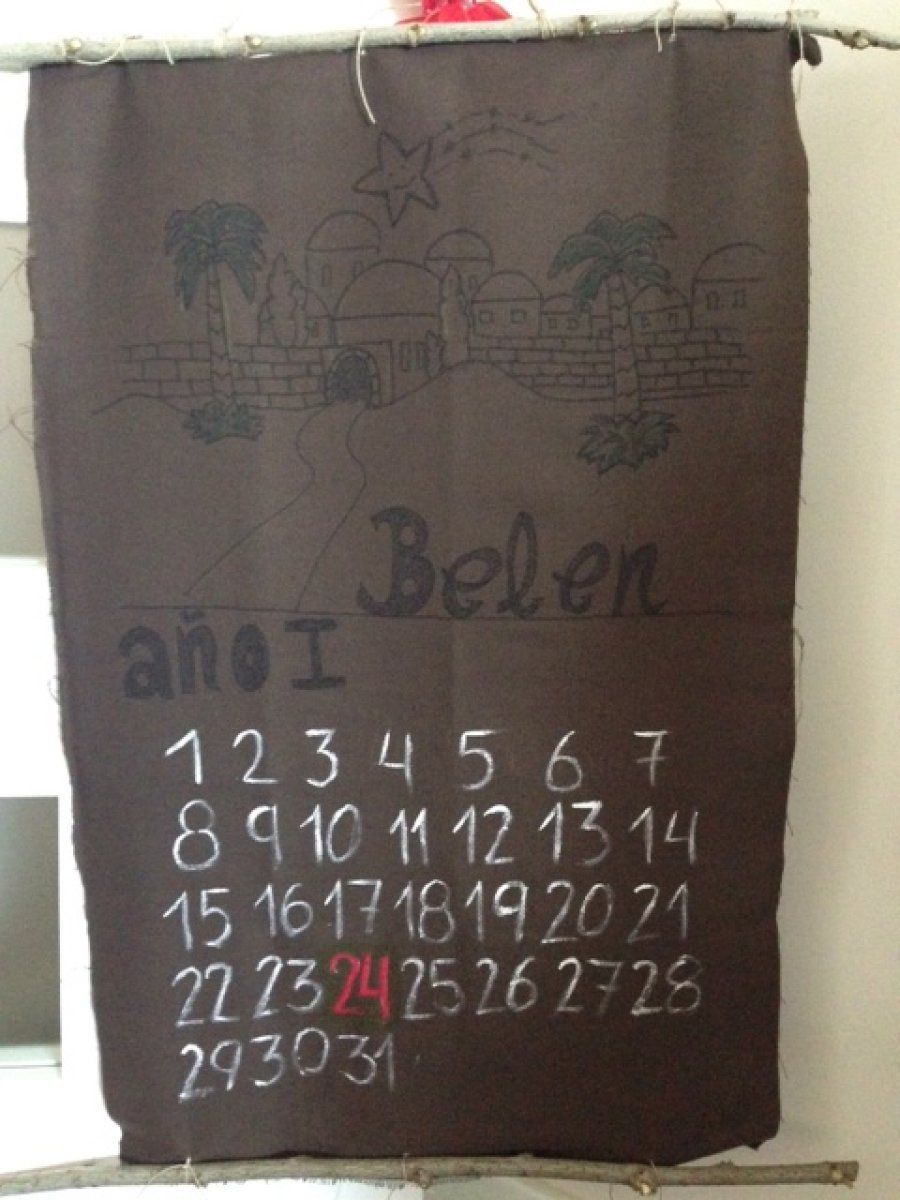 Belen
año I
1 2 3 4 5 6 7
8 9 10 11 12 13 14
15 16 17 18 19 20 21
22 23 24 25 26 27 28
29 30 31